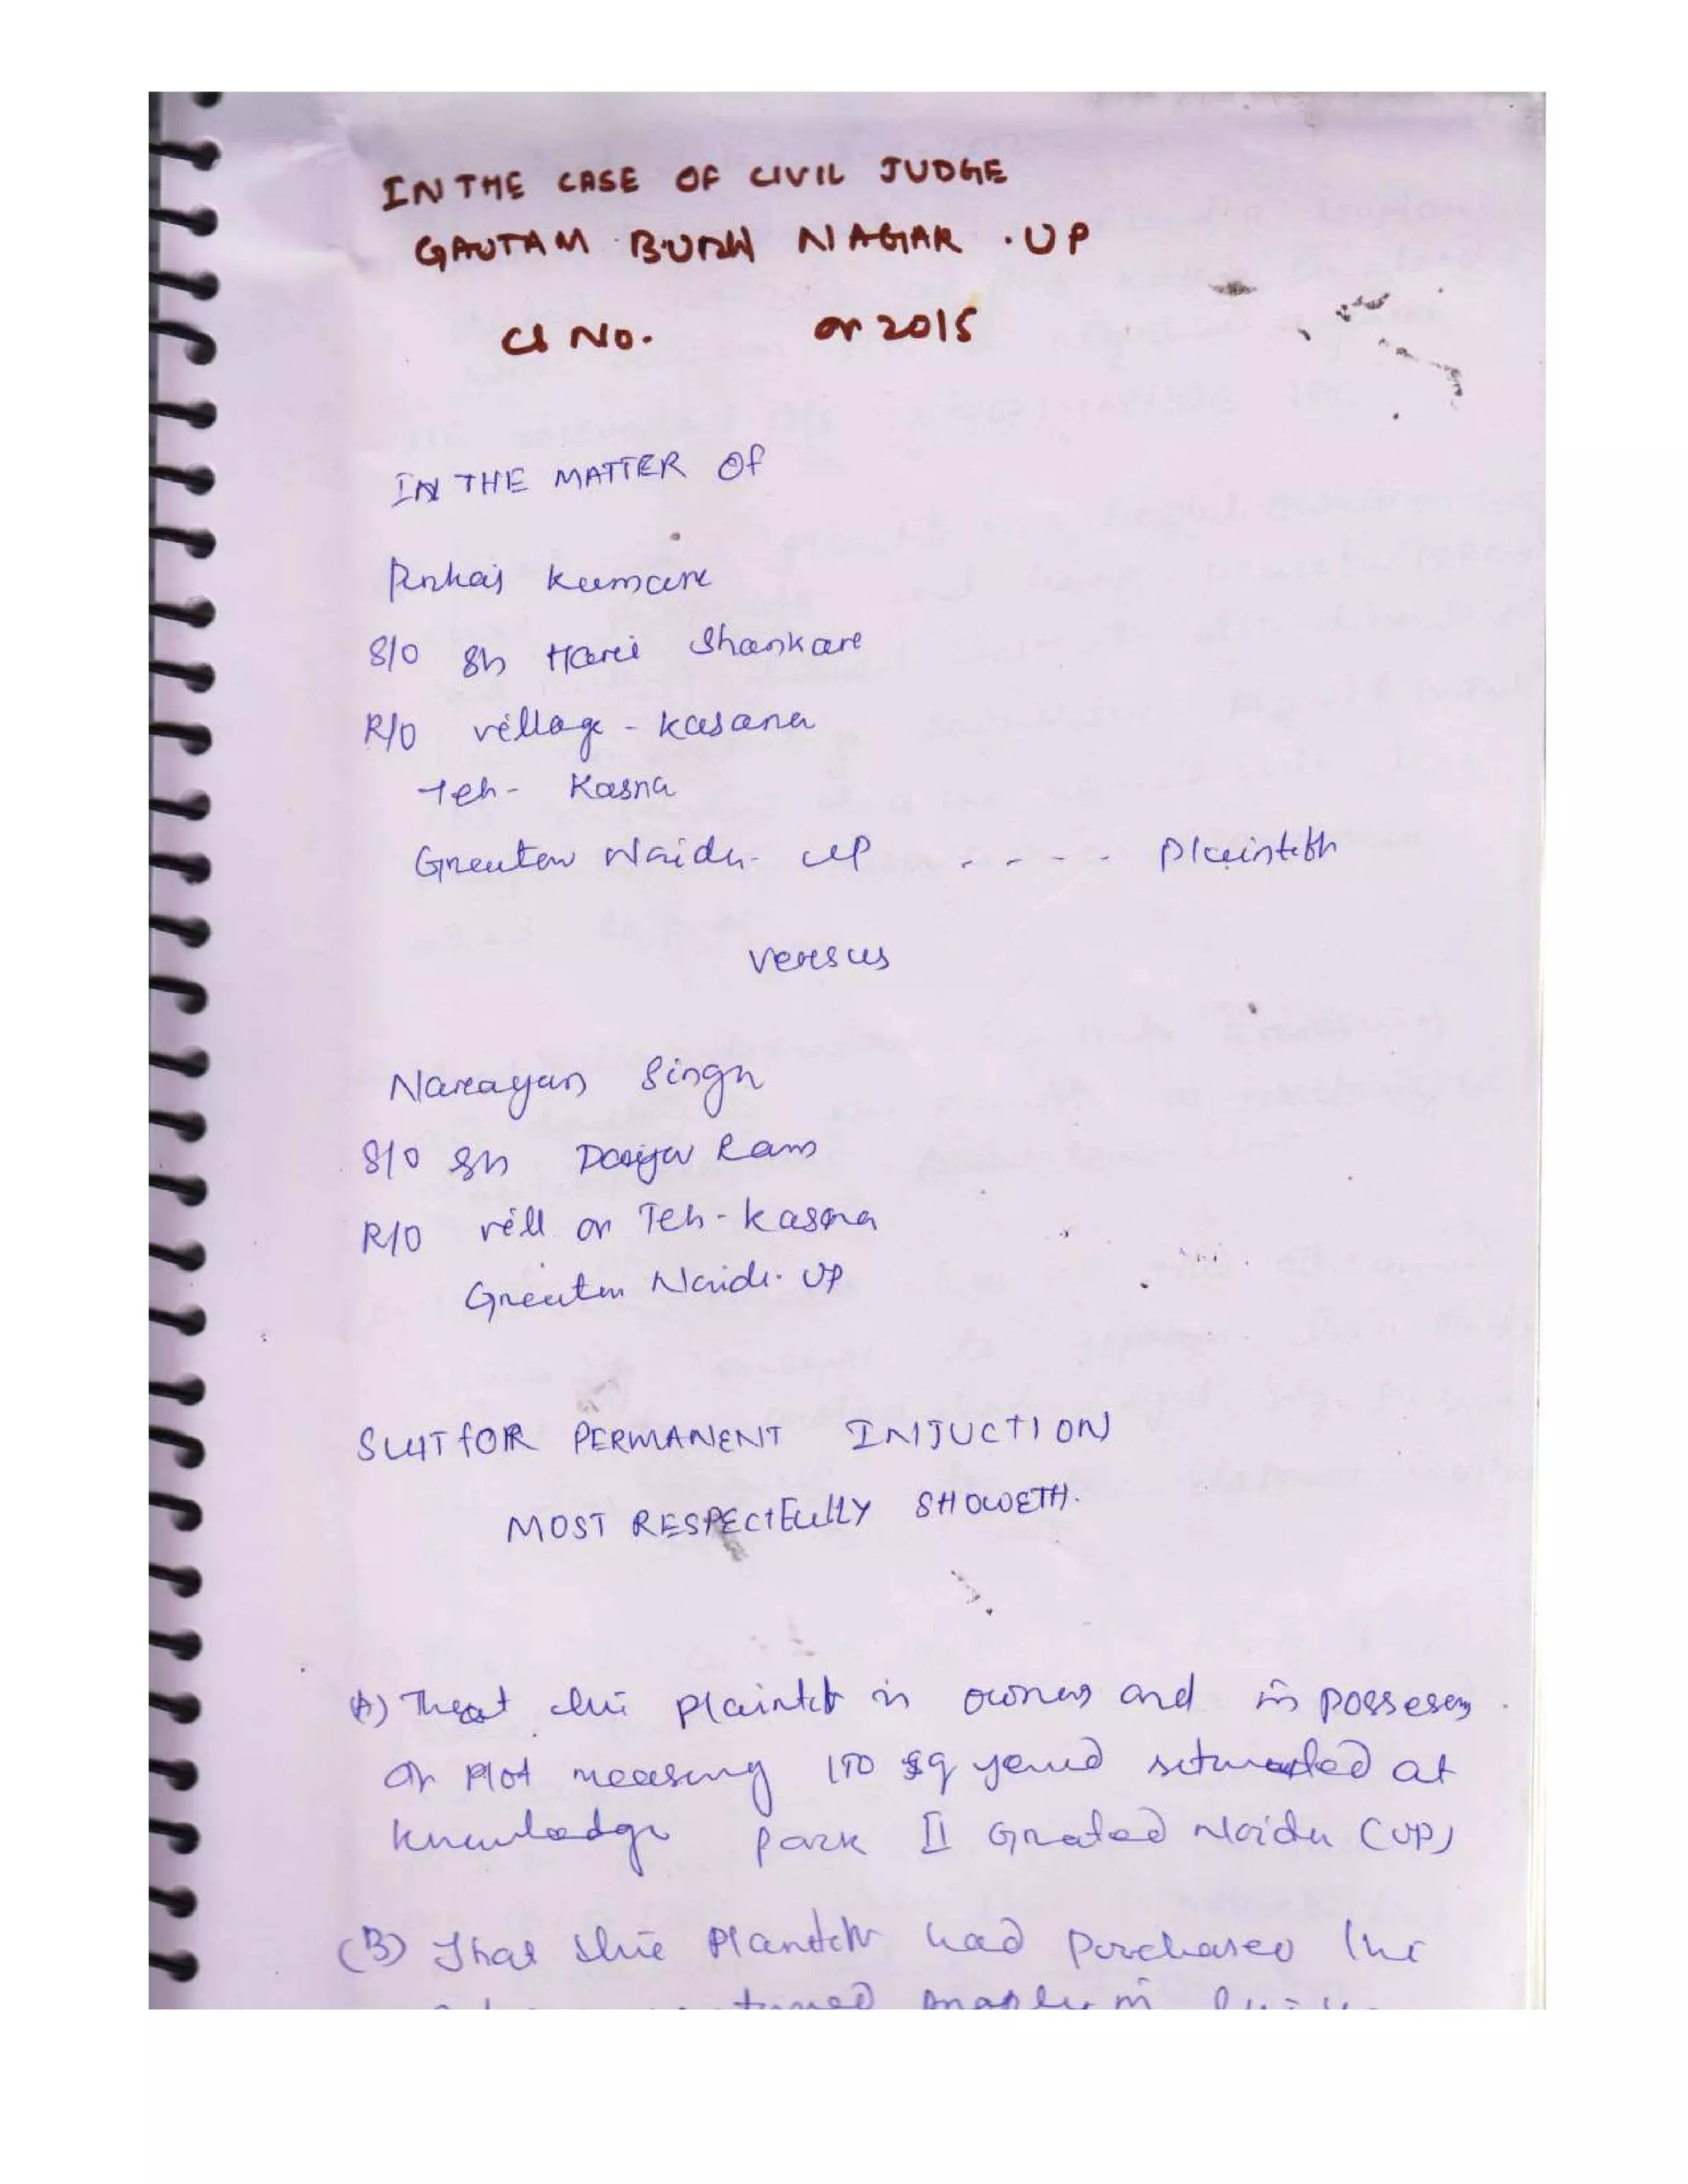 IN THE CASE OF CIVIL JUDGE
GAUTAM BUDH NAGAR . UP
CS No. of 2015
IN THE MATTER Of
Pankaj Kumar
S/O Sh Hari Shankar
R/O village - Kasana
Teh - Kasna
Greater Noida - UP - - - - Plaintiff
Versus
Narayan Singh
S/O Sh Ram
R/O vill or Teh - Kasana
Greater Noida. UP
SUIT fOR PERMANENT INJUCTION
MOST RESPECTFULLY SHOWETH.
A) That the plaintiff is owner and in
of Plot measuring 150 sq yard at
Knowledge Park II Noida (UP)
(B) That the had Purchased the